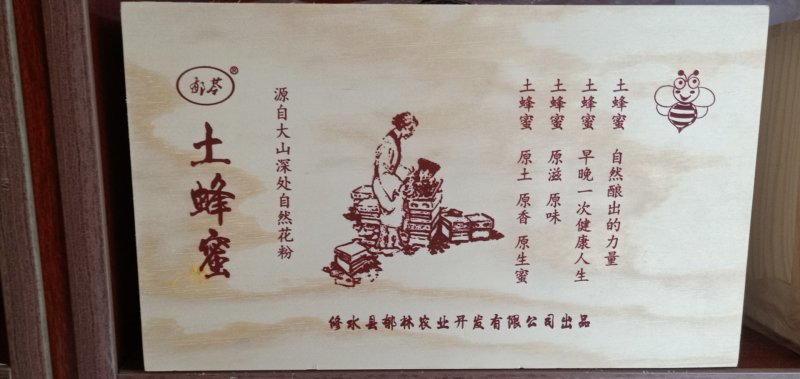 土蜂蜜
源自大山深处自然花粉
土蜂蜜 自然酿出的力量
土蜂蜜 早晚一次健康人生
土蜂蜜 原滋 原味
土蜂蜜 原土 原香 原生蜜
修水县郁林农业开发有限公司出品